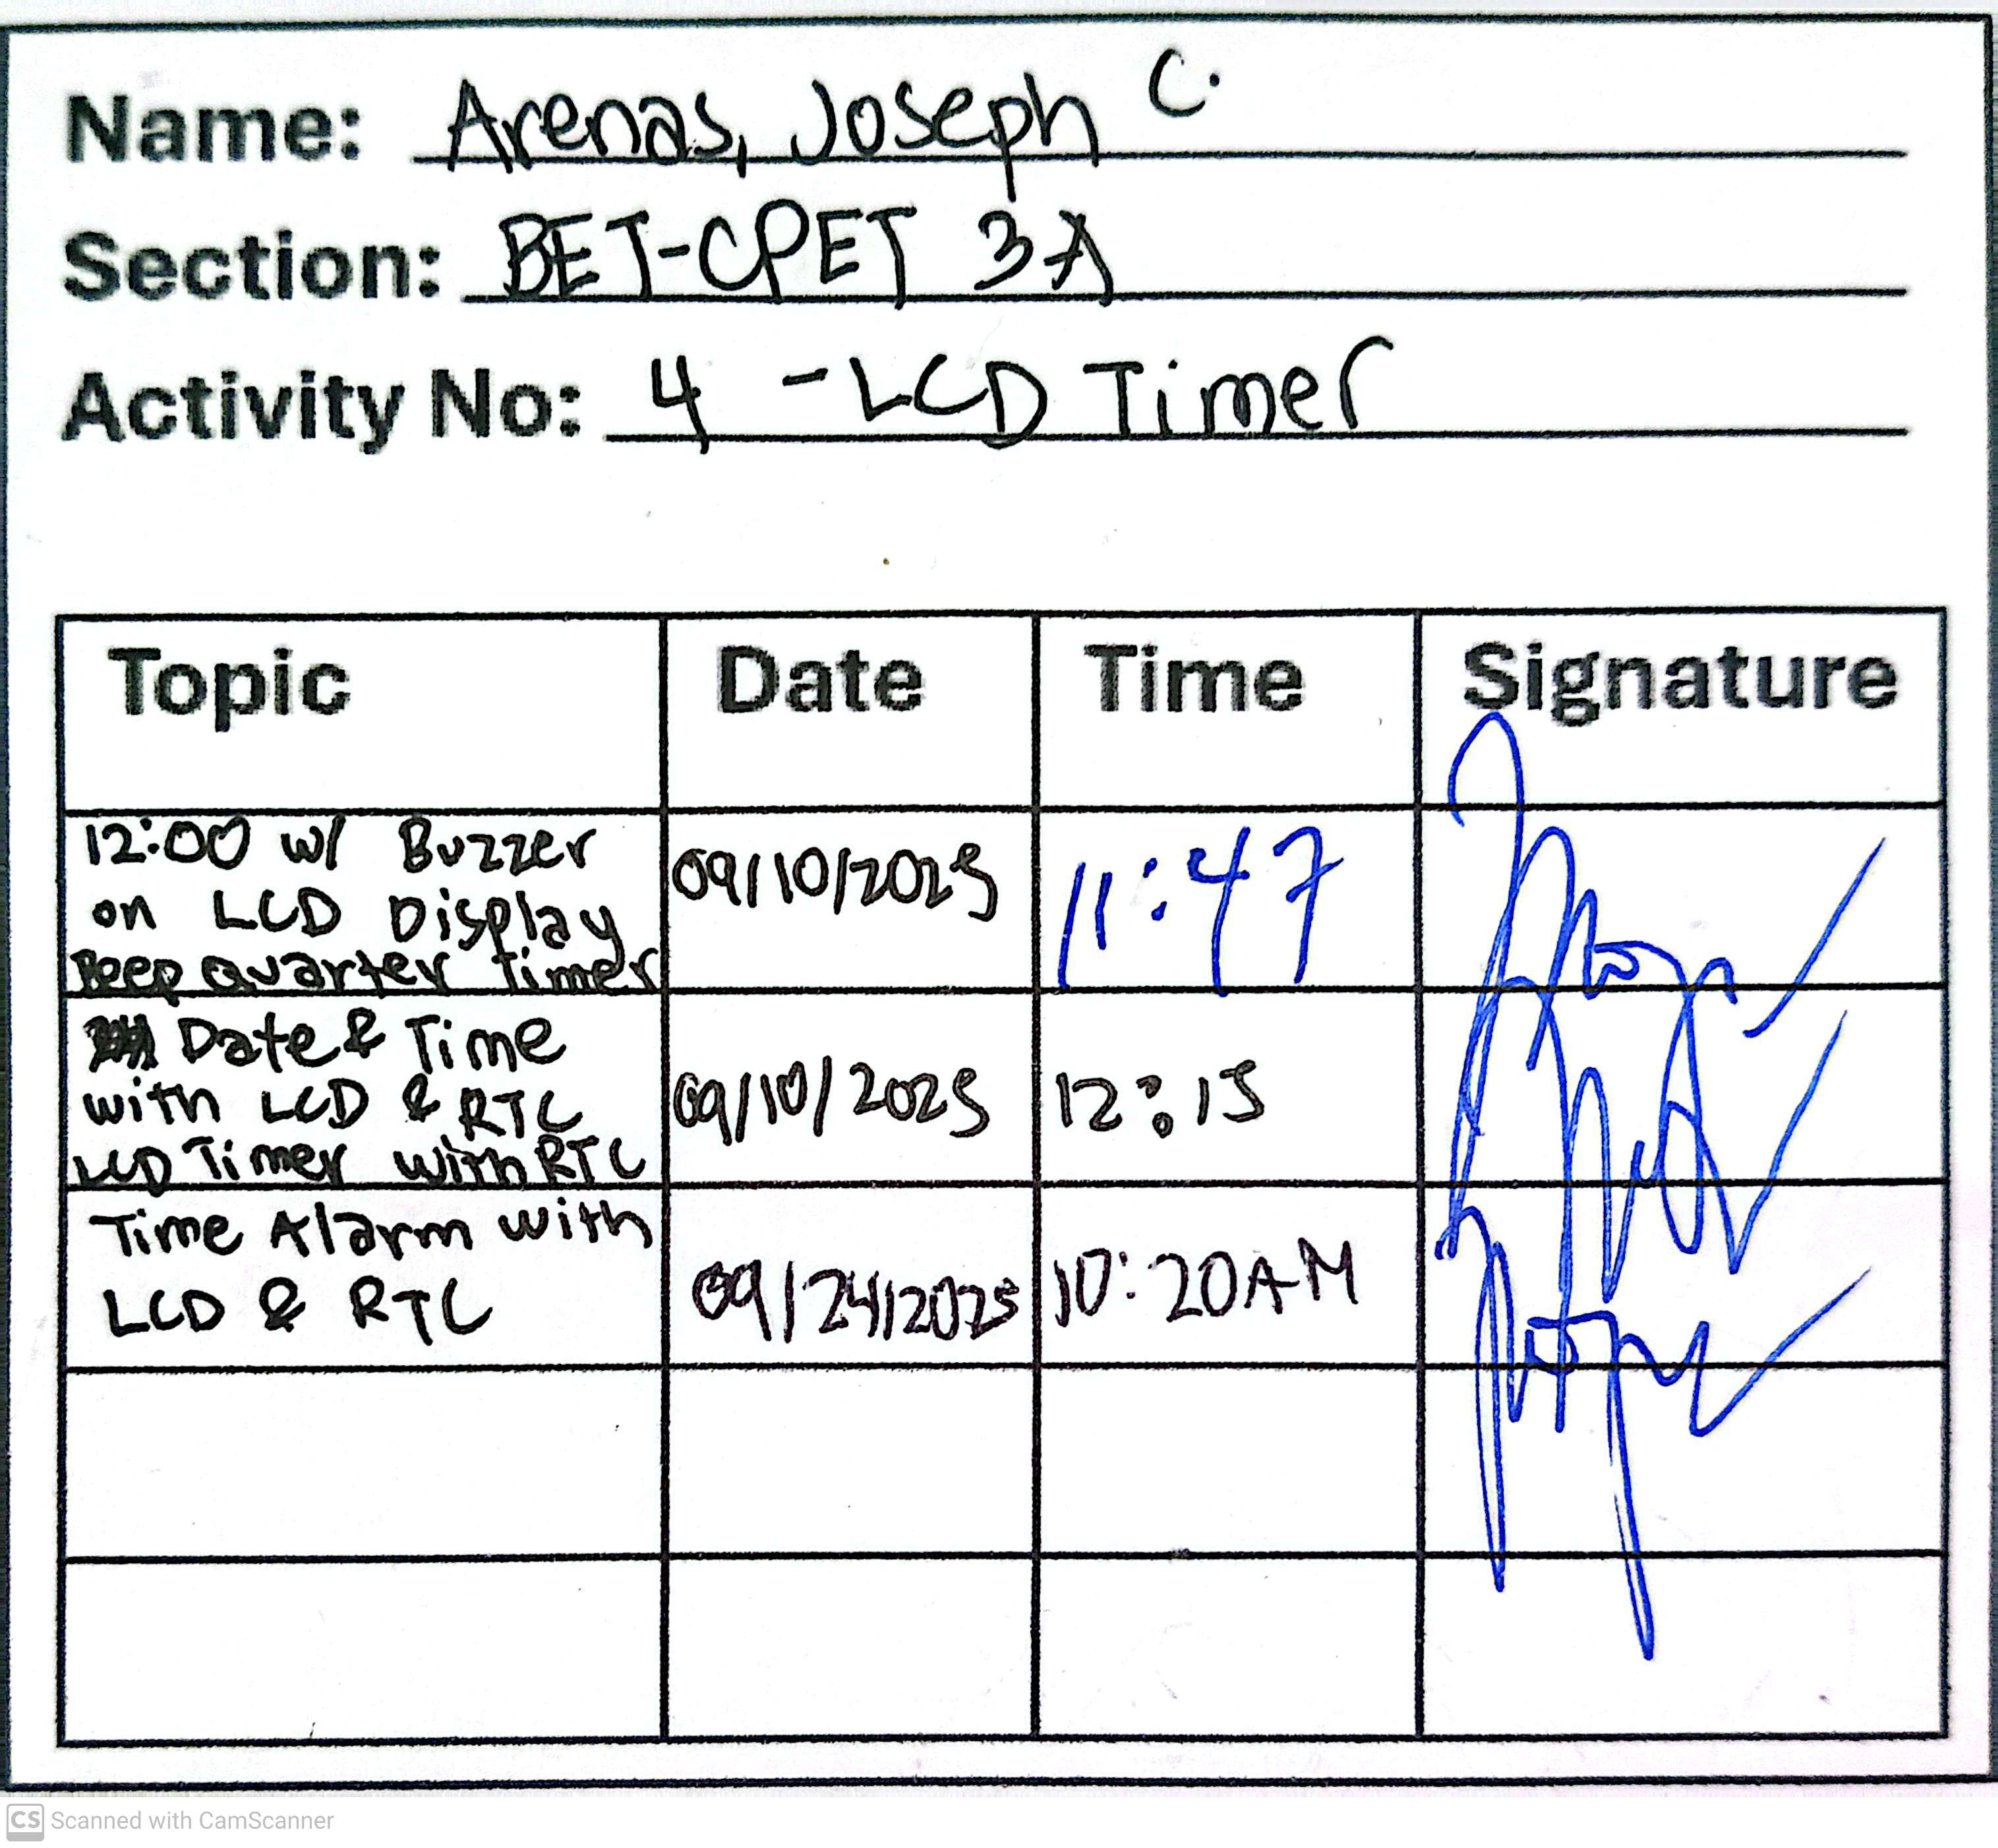 Name: Arenas, Joseph C.
Section: BET-CPET 3A
Activity No: 4 - LCD Timer
Topic Date Time Signature
12:00 w/ Buzzer
on LCD Display
Beep Quarter Timer
09/10/2025
11:47
Date & Time
with LCD & RTC
LCD Timer with RTC
09/10/2025
12:15
Time Alarm with
LCD & RTC
09/24/2025
10:20AM
CS Scanned with CamScanner